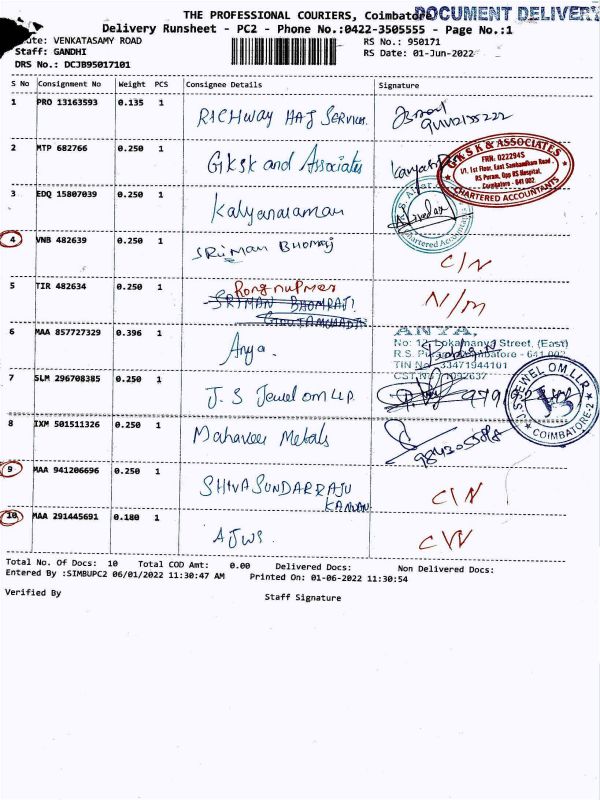 THE PROFESSIONAL COURIERS, Coimbatore
DOCUMENT DELIVERY
Delivery Runsheet - PC2 - Phone No.:0422-3505555 - Page No.:1
Route: VENKATASAMY ROAD
RS No.: 950171
Staff: GANDHI
RS Date: 01-Jun-2022
DRS No.: DCJB95017101
S No Consignment No Weight PCS Consignee Details Signature
1 PRO 13163593 0.135 1 RICHWAY HAJ SERVICES.
2 MTP 682766 0.250 1 GKSK and Associates
G K S K & ASSOCIATES
FRN. 022294S
1/1, 1st Floor, East Sambandham Road,
RS Puram, Opp RS Hospital,
Coimbatore - 641 002.
CHARTERED ACCOUNTANTS
3 EDQ 15807039 0.250 1 Kalyanaraman
Chartered Accountants
4 VNB 482639 0.250 1 SRIMAN BHOMRAJ C/N
5 TIR 482634 0.250 1 N/M
SRIMAN BHOMRAJ
6 MAA 857727329 0.396 1 Anya.
ANYA,
No: 12, Lokamanya Street, (East)
R.S. Puram, Coimbatore - 641 002
TIN No: 33471944101
7 SLM 296708385 0.250 1 J. S Jewel om LLP.
J.S JEWEL OM LLP.
COIMBATORE-2
8 IXM 501511326 0.250 1 Mahaveer Metals
9 MAA 941206696 0.250 1 SHIVA SUNDARRAJU C/N
KANNAN
10 MAA 291445691 0.180 1 AJWS.
Total No. Of Docs: 10 Total COD Amt: 0.00 Delivered Docs: Non Delivered Docs:
Entered By :SIMBUPC2 06/01/2022 11:30:47 AM Printed On: 01-06-2022 11:30:54
Verified By
Staff Signature